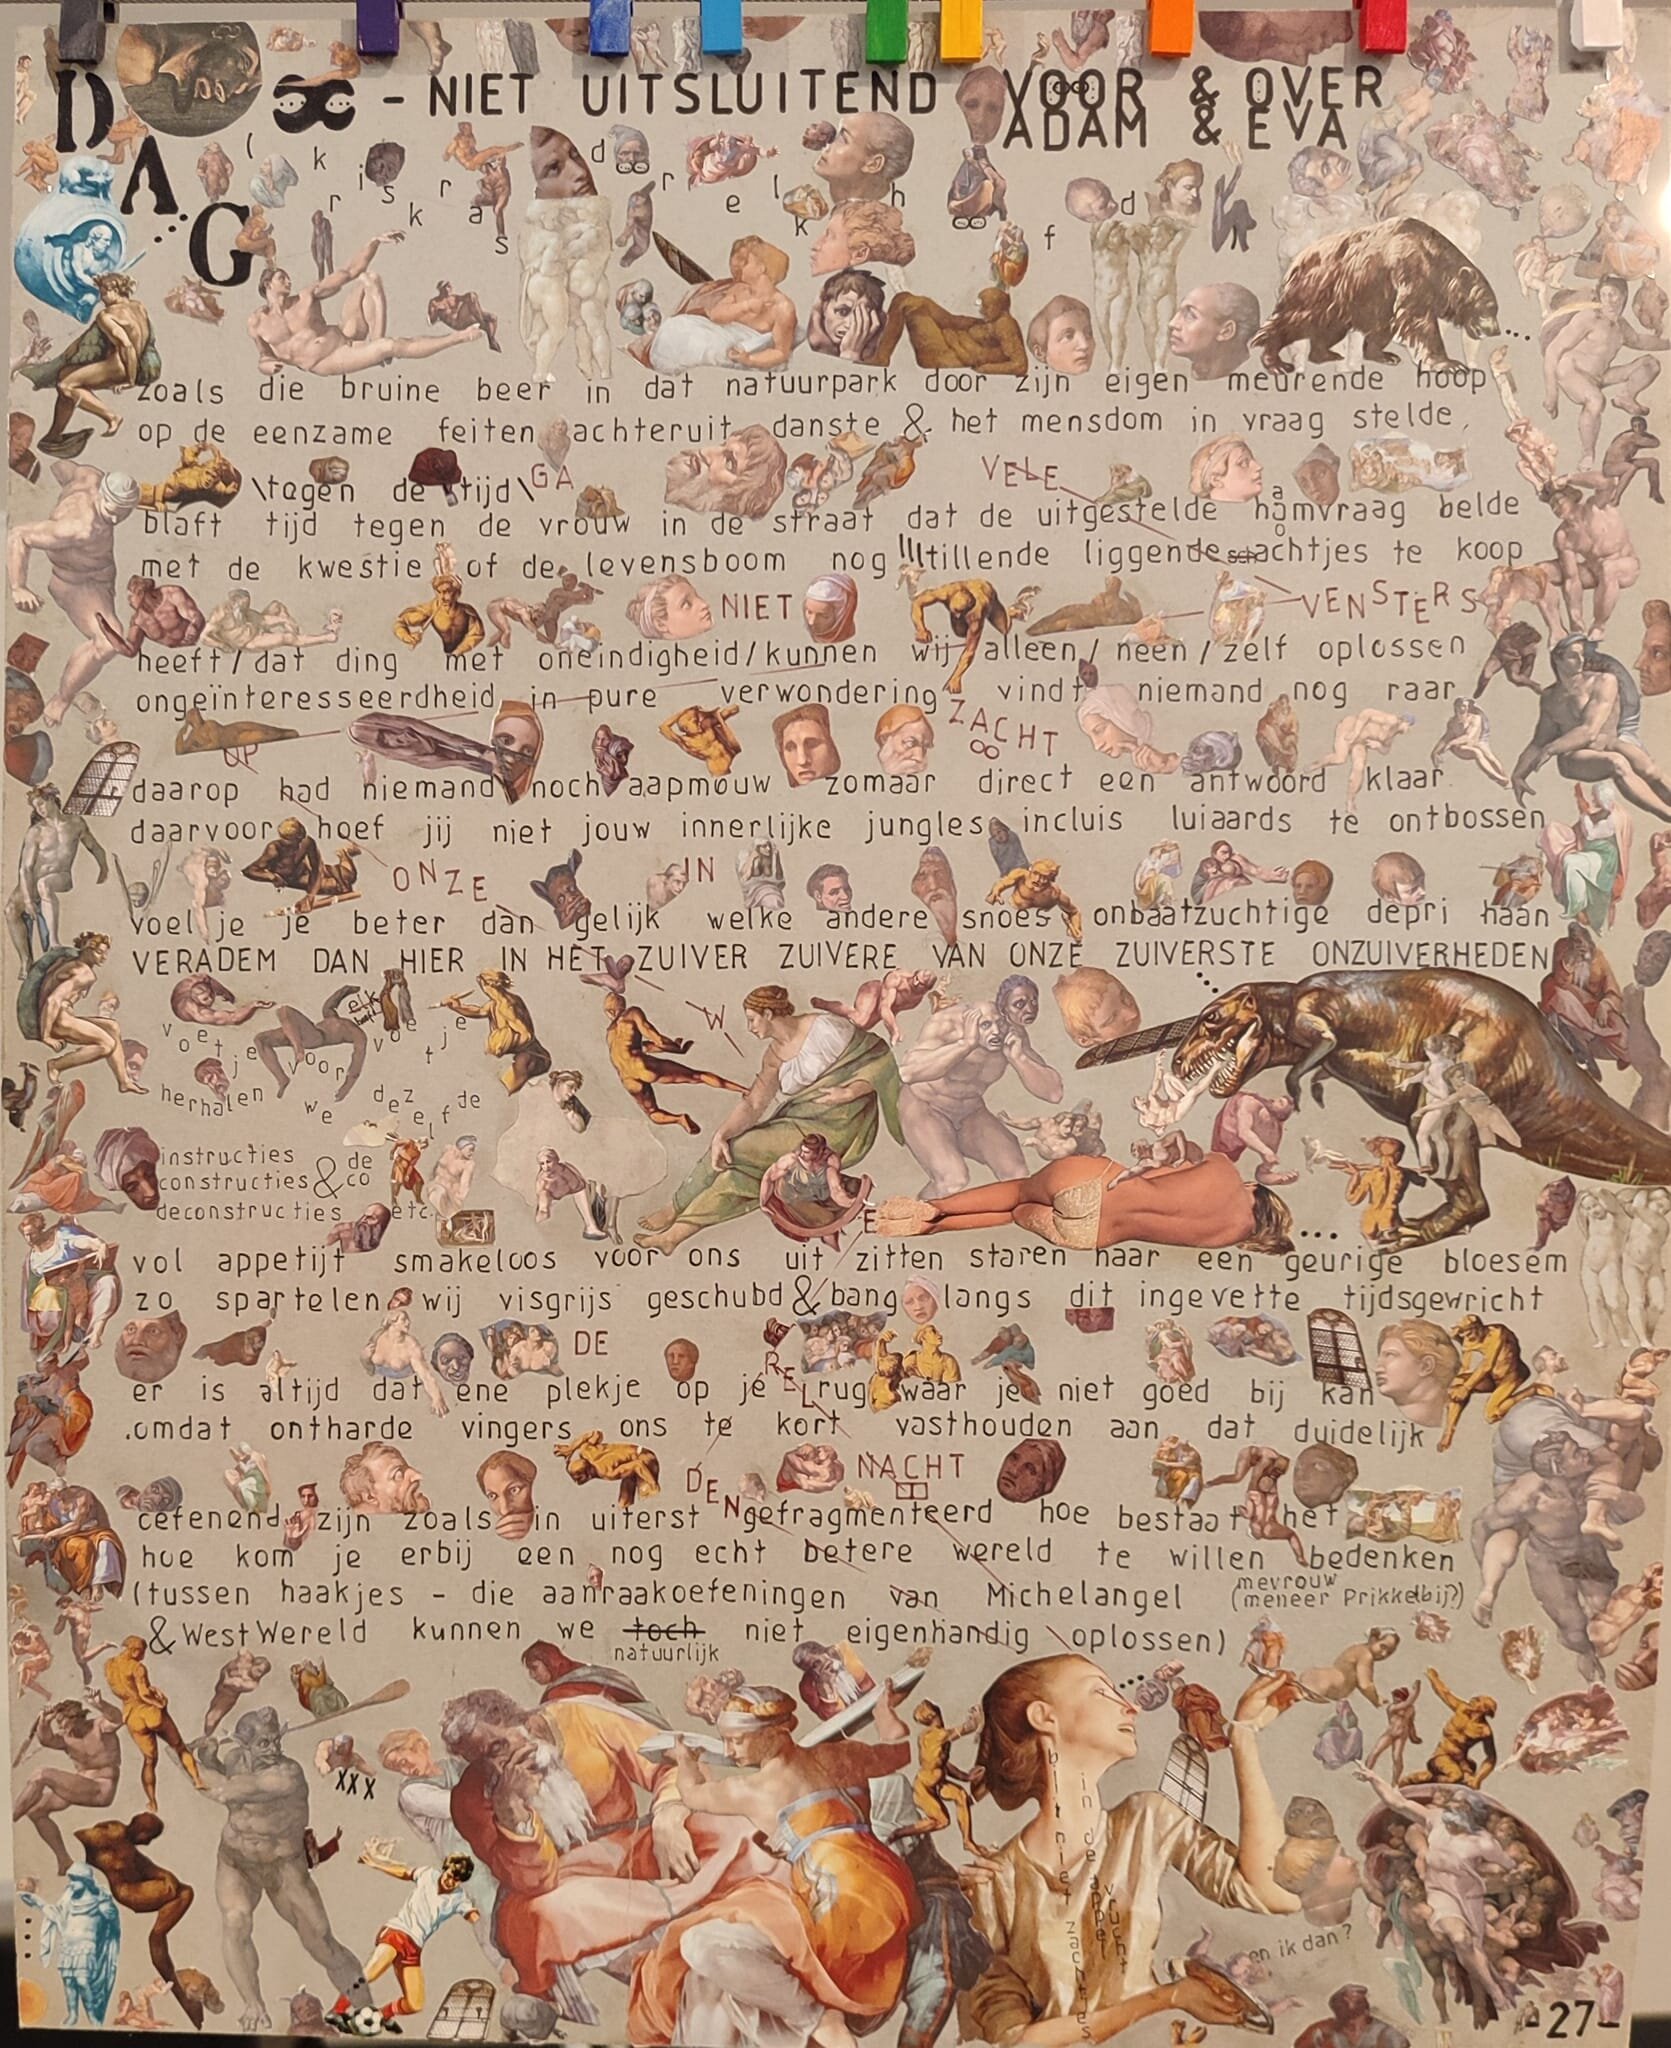 DAG
- NIET UITSLUITEND VOOR & OVER
ADAM & EVA
( kriskras d r e l k h f d
zoals die bruine beer in dat natuurpark door zijn eigen meurende hoop
op de eenzame feiten achteruit danste & het mensdom in vraag stelde
\tegen de tijd\ GA VELE
blaft tijd tegen de vrouw in de straat dat de uitgestelde hamvraag belde
met de kwestie of de levensboom nog !!!tillende liggende achtjes te koop
NIET VENSTERS
heeft/dat ding met oneindigheid/kunnen wij alleen/neen/zelf oplossen
ongeïnteresseerdheid in pure verwondering vindt niemand nog raar
OP ZACHT
daarop had niemand noch aapmouw zomaar direct een antwoord klaar
daarvoor hoef jij niet jouw innerlijke jungles incluis luiaards te ontbossen
ONZE IN
voel je je beter dan gelijk welke andere snoes onbaatzuchtige depri haan
VERADEM DAN HIER IN HET ZUIVER ZUIVERE VAN ONZE ZUIVERSTE ONZUIVERHEDEN
W
voetje voor voetje
herhalen we dezelfde
instructies
constructies & de co
deconstructies etc.
E
vol appetijt smakeloos voor ons uit zitten staren naar een geurige bloesem
zo spartelen wij visgrijs geschubd & bang langs dit ingevette tijdsgewricht
DE REL
er is altijd dat ene plekje op je rug waar je niet goed bij kan
.omdat ontharde vingers ons te kort vasthouden aan dat duidelijk
DEN NACHT
oefenend zijn zoals in uiterst gefragmenteerd hoe bestaat het
hoe kom je erbij een nog echt betere wereld te willen bedenken
(tussen haakjes - die aanraakoefeningen van Michelangel (mevrouw
meneer Prikkelbij?)
& WestWereld kunnen we toch niet eigenhandig oplossen)
natuurlijk
XXX
bijt niet zachtjes
in de appel
vlucht
en ik dan?
-27-